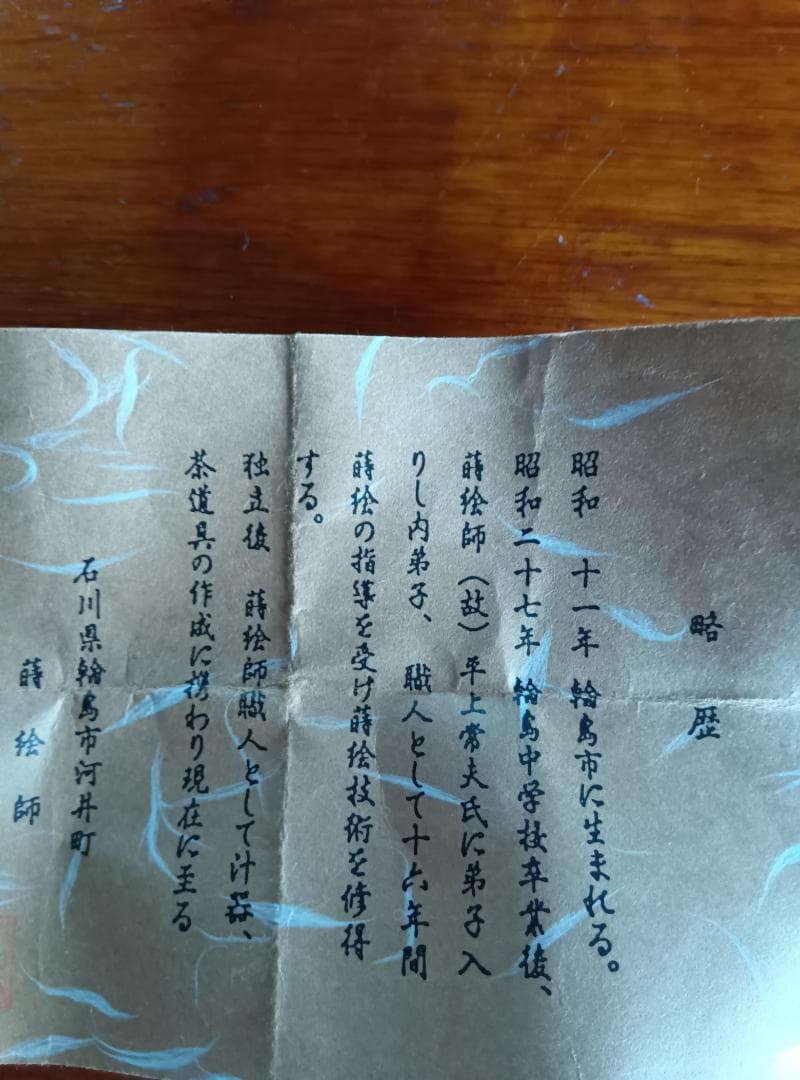 略歴
昭和 十一年 輪島市に生まれる。
昭和二十七年 輪島中学校卒業後、
蒔絵師（故）平上常夫氏に弟子入
りし内弟子、 職人として十六年間
蒔絵の指導を受け蒔絵技術を修得
する。
独立後 蒔絵師職人として汁器、
茶道具の作成に携わり現在に至る
石川県輪島市河井町
蒔絵師